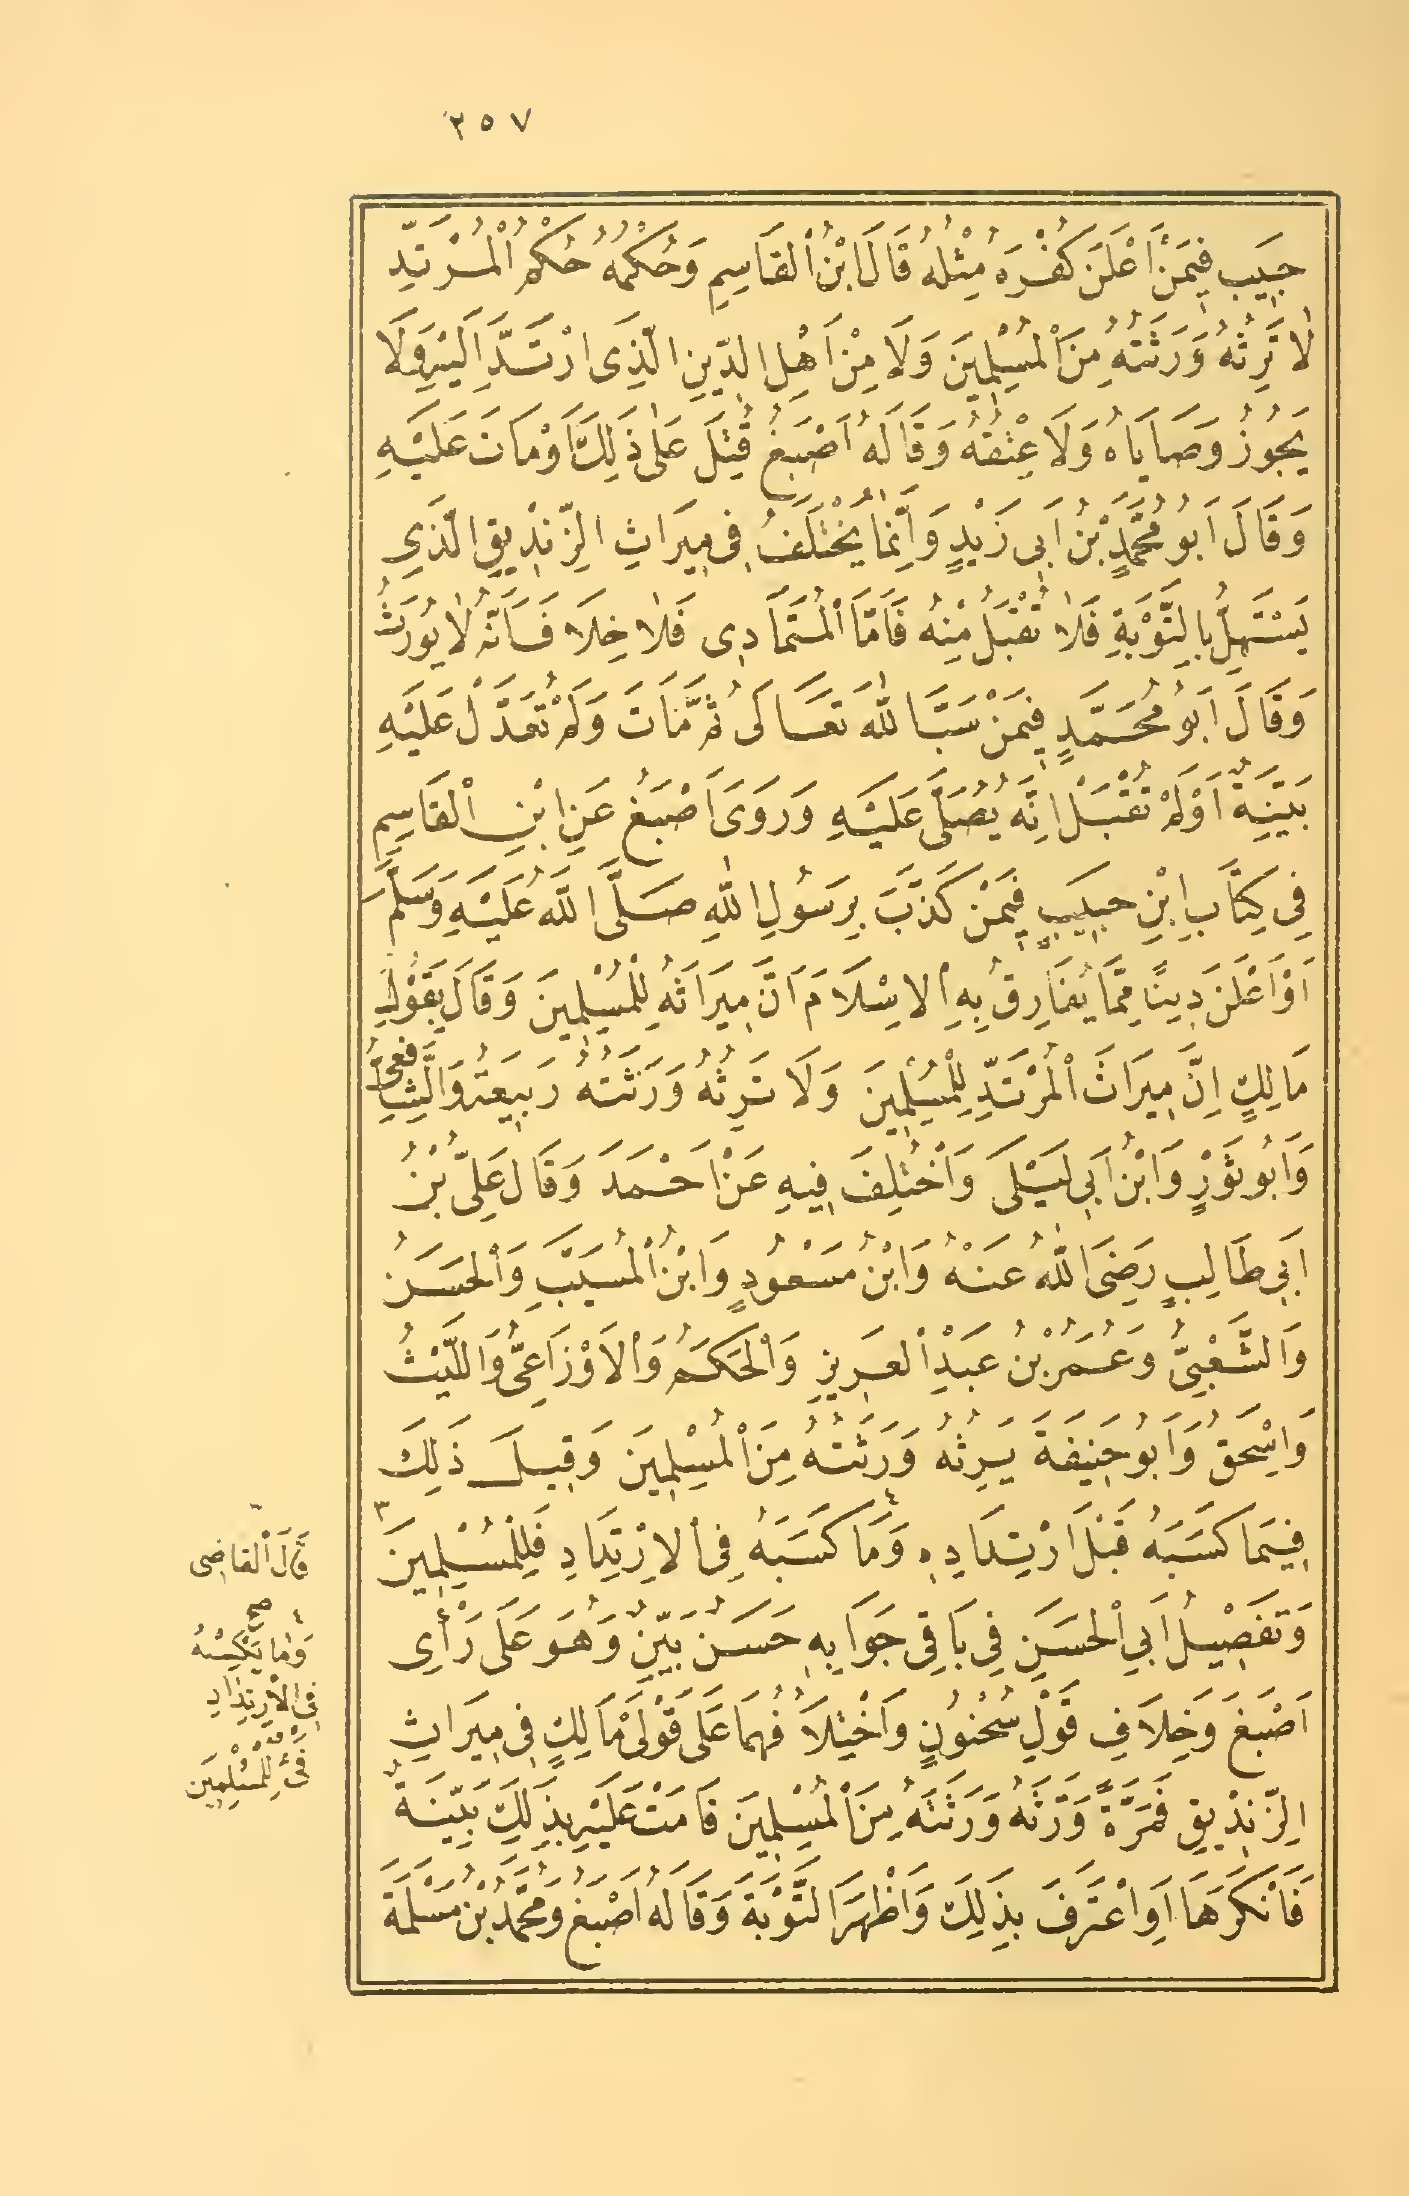 ٢٥٧
حَبِيبٍ فِيمَنْ أَعْلَنَ كُفْرَهُ مِثْلُهُ قَالَ ابْنُ الْقَاسِمِ وَحُكْمُهُ حُكْمُ الْمُرْتَدِّ
لَا تَرِثُهُ وَرَثَتُهُ مِنَ الْمُسْلِمِينَ وَلَا مِنْ اَهْلِ الدِّينِ الَّذِى ارْتَدَّ اِلَيْهِ وَلَا
يَجُوزُ وَصَايَاهُ وَلَا عِتْقُهُ وَقَالَهُ اَصْبَغُ قُتِلَ عَلَى ذَلِكَ اَوْ مَاتَ عَلَيْهِ
وَقَالَ اَبُو مُحَمَّدِ بْنُ اَبِى زَيْدٍ وَاِنَّمَا يُخْتَلَفُ فِى مِيرَاثِ الزِّنْدِيقِ الَّذِى
يَسْتَهِلُّ بِالتَّوْبَةِ فَلَا تُقْبَلُ مِنْهُ فَاَمَّا الْمُتَمَادِى فَلَا خِلَافَ اَنَّهُ لَا يُورَثُ
وَقَالَ اَبُو مُحَمَّدٍ فِيمَنْ سَبَّ اللهَ تَعَالَى ثُمَّ مَاتَ وَلَمْ تُعَدَّلْ عَلَيْهِ
بَيِّنَةٌ اَوْ لَمْ تُقْبَلْ اِنَّهُ يُصَلَّى عَلَيْهِ وَرَوَى اَصْبَغُ عَنِ ابْنِ الْقَاسِمِ
فِى كِتَابِ ابْنِ حَبِيبٍ فِيمَنْ كَذَّبَ بِرَسُولِ اللهِ صَلَّى اللهُ عَلَيْهِ وَسَلَّمَ
اَوْ اَعْلَنَ دِينًا مِمَّا يُفَارِقُ بِهِ الْاِسْلَامَ اَنَّ مِيرَاثَهُ لِلْمُسْلِمِينَ وَقَالَ بِقَوْلِ
مَالِكٍ اِنَّ مِيرَاثَ الْمُرْتَدِّ لِلْمُسْلِمِينَ وَلَا تَرِثُهُ وَرَثَتُهُ رَبِيعَةُ وَالشَّافِعِىُّ
وَاَبُو ثَوْرٍ وَابْنُ اَبِى لَيْلَى وَاخْتُلِفَ فِيهِ عَنْ اَحْمَدَ وَقَالَ عَلِىُّ بْنُ
اَبِى طَالِبٍ رَضِىَ اللهُ عَنْهُ وَابْنُ مَسْعُودٍ وَابْنُ الْمُسَيَّبِ وَالْحَسَنُ
وَالشَّعْبِىُّ وَعُمَرُ بْنُ عَبْدِ الْعَزِيزِ وَالْحَكَمُ وَالْاَوْزَاعِىُّ وَاللَّيْثُ
وَاِسْحٰقُ وَاَبُو حَنِيفَةَ يَرِثُهُ وَرَثَتُهُ مِنَ الْمُسْلِمِينَ وَقِيلَ ذَلِكَ
فِيمَا كَسَبَهُ قَبْلَ ارْتِدَادِهِ ٤ وَمَا كَسَبَهُ فِى الْاِرْتِدَادِ فَلِلْمُسْلِمِينَ ٣
وَتَفْصِيلُ اَبِى الْحَسَنِ فِى بَاقِى جَوَابِهِ حَسَنٌ بَيِّنٌ وَهُوَ عَلَى رَأْىِ
اَصْبَغَ وَخِلَافِ قَوْلِ سُحْنُونٍ وَاخْتِلَافُهُمَا عَلَى قَوْلَىْ مَالِكٍ فِى مِيرَاثِ
الزِّنْدِيقِ فَمَرَّةً وَرَّثَهُ وَرَثَتَهُ مِنَ الْمُسْلِمِينَ قَامَتْ عَلَيْهِ بِذَلِكَ بَيِّنَةٌ
فَاَنْكَرَهَا اَوِ اعْتَرَفَ بِذَلِكَ وَاَظْهَرَ التَّوْبَةَ وَقَالَهُ اَصْبَغُ وَمُحَمَّدُ بْنُ مَسْلَمَةَ
٣
قَالَ الْقَاضِى
صح
٤
وَمَا يَكْسِبُهُ
فِى الْاِرْتِدَادِ
فَىْءٌ لِلْمُسْلِمِينَ